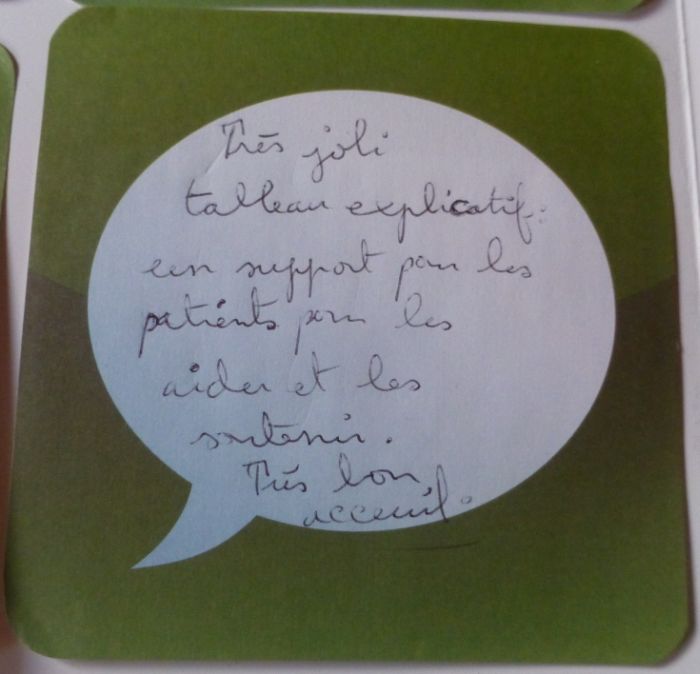 Très joli
tableau explicatif :
un support pour les
patients pour les
aider et les
soutenir.
Très bon
acceuil.